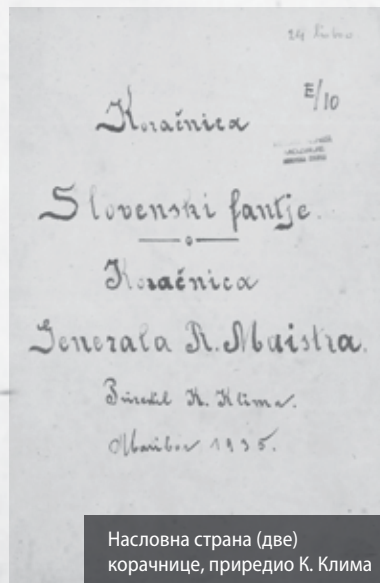 E/10
Koračnica
Slovenski fantje.
Koračnica
Generala R. Maistra.
Priredil K. Klima.
Maribor 1935.
Насловна страна (две)
корачнице, приредио К. Клима